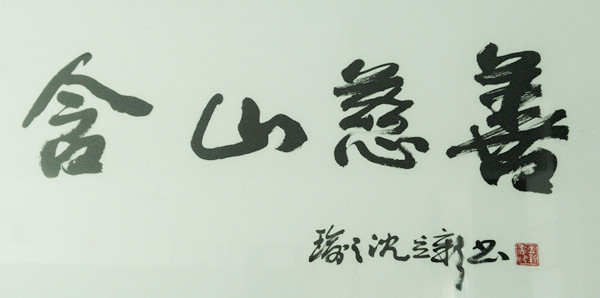 含山慈善
瑜之沈立新书